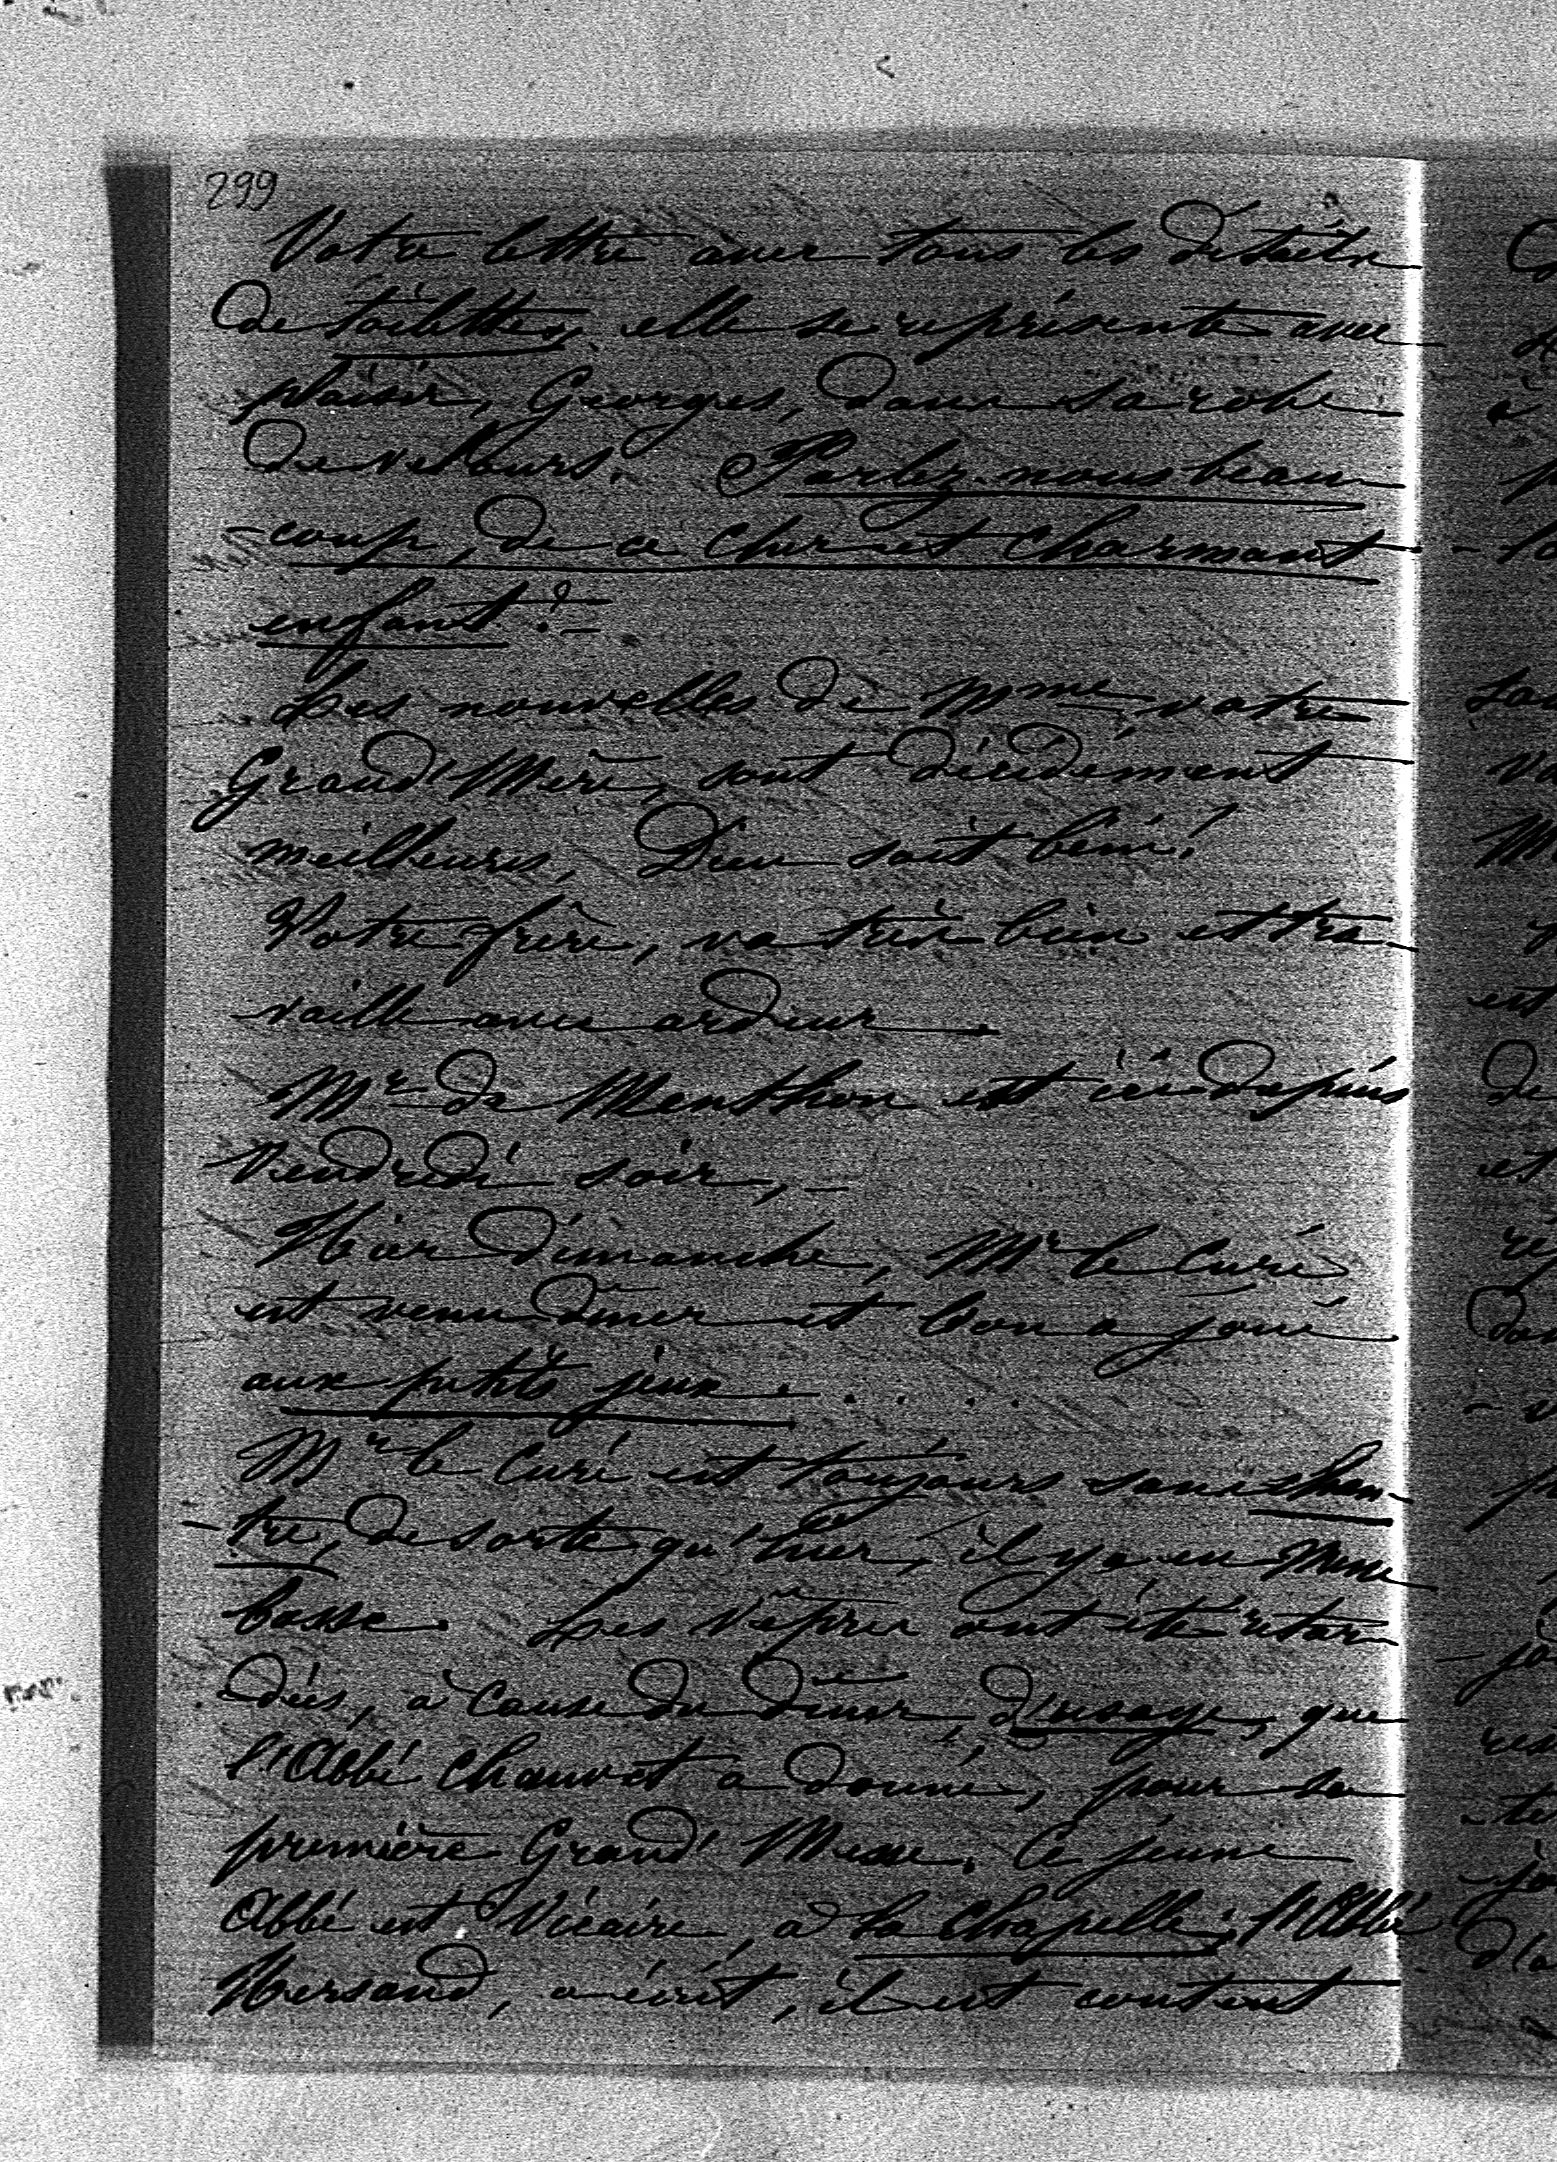 299
Votre lettre avec tous les détails
de toilettes, elle se représente avec
plaisir, Georges, dans sa robe
de velours. Parlez-nous beau-
-coup, de ce cher et charmant
enfant ! -
Les nouvelles de Mme votre
Grand'Mère, sont décidément
meilleures, Dieu soit béni !
Votre frère, va très bien et tra-
vaille avec ardeur.
Mr de Menthon est ici depuis
Vendredi soir, -
Hier dimanche, Mr le Curé
est venu dîner et l'on a joué
aux petits jeux . . . . .
Mr le Curé est toujours sans chan-
-tre, de sorte qu'hier, il y a eu Messe
basse. Les Vêpres ont été retar-
-dées, à cause du dîner, d'usage, que
l'Abbé Chauvot a donné, pour sa
première Grand'Messe. Ce jeune
Abbé est Vicaire, à la Chapelle; l'Abbé
Mersand, a écrit, il est content